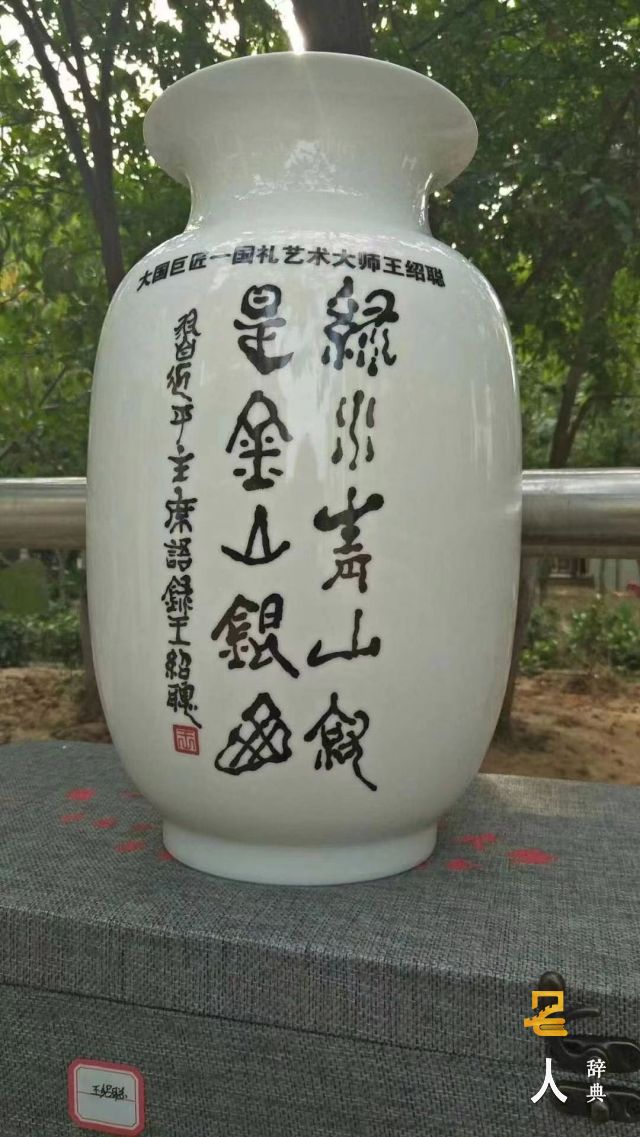 大国巨匠一国礼艺术大师王绍聪
緑水青山就
是金山銀山
習近平主席語録王紹聰
王紹聰
名人辞典